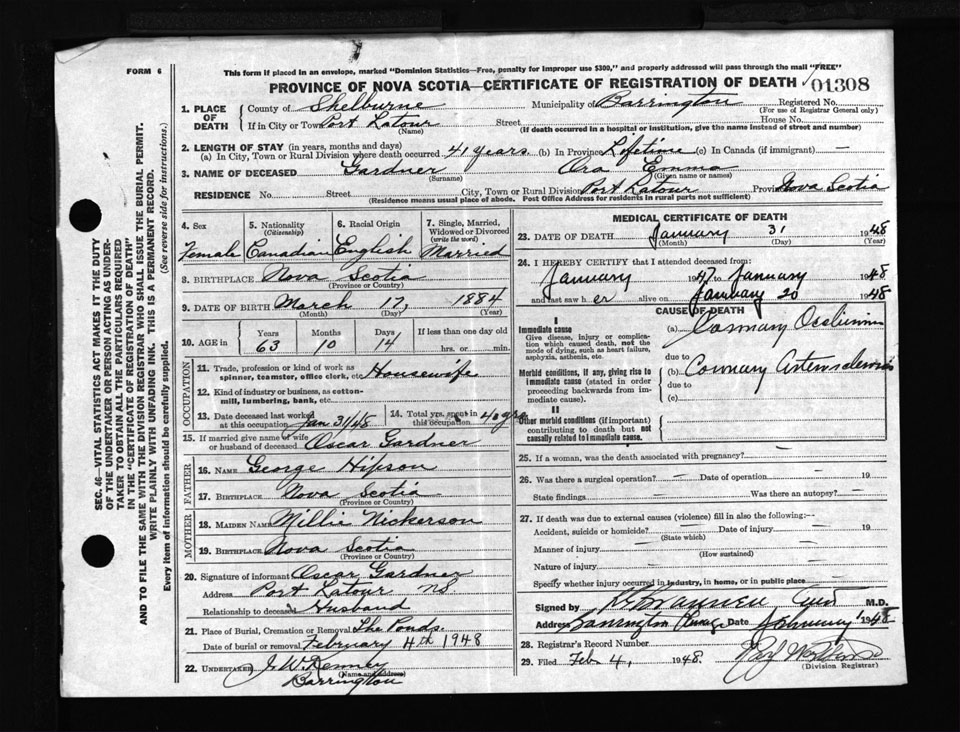 FORM 6
This form if placed in an envelope, marked "Dominion Statistics—Free, penalty for improper use $300," and properly addressed will pass through the mail "FREE"
PROVINCE OF NOVA SCOTIA—CERTIFICATE OF REGISTRATION OF DEATH 01308
1. PLACE OF DEATH
County of Shelburne Municipality of Barrington Registered No.
(For use of Registrar General only)
If in City or Town Port Latour Street House No.
(Name) (If death occurred in a hospital or institution, give the name instead of street and number)
2. LENGTH OF STAY (in years, months and days)
(a) In City, Town or Rural Division where death occurred 41 years (b) In Province Lifetime (c) In Canada (if immigrant) —
3. NAME OF DECEASED Gardner Ora Emma
(Surname) (Given name or names)
RESIDENCE No. Street City, Town or Rural Division Port Latour Province Nova Scotia
(Residence means usual place of abode. Post Office Address for residents in rural parts not sufficient)
4. Sex Female
5. Nationality (Citizenship) Canadian
6. Racial Origin English
7. Single, Married, Widowed or Divorced (write the word) Married
8. BIRTHPLACE Nova Scotia
(Province or Country)
9. DATE OF BIRTH March 17, 1884
(Month) (Day) (Year)
10. AGE in Years 63 Months 10 Days 14 If less than one day old hrs. or min.
OCCUPATION
11. Trade, profession or kind of work as spinner, teamster, office clerk, etc. Housewife
12. Kind of industry or business, as cotton-mill, lumbering, bank, etc.
13. Date deceased last worked at this occupation Jan 31/48
14. Total yrs. spent in this occupation 40 yrs
15. If married give name of wife or husband of deceased Oscar Gardner
FATHER
16. NAME George Hipson
17. BIRTHPLACE Nova Scotia
(Province or Country)
MOTHER
18. MAIDEN NAME Millie Nickerson
19. BIRTHPLACE Nova Scotia
(Province or Country)
20. Signature of informant Oscar Gardner
Address Port Latour NS
Relationship to deceased Husband
21. Place of Burial, Cremation or Removal The Ponds
Date of burial or removal February 4th 1948
22. UNDERTAKER J. W. Kenney
(Name and address)
Barrington
MEDICAL CERTIFICATE OF DEATH
23. DATE OF DEATH January 31 1948
(Month) (Day) (Year)
24. I HEREBY CERTIFY that I attended deceased from:
January 1947 to January 1948
and last saw h er alive on January 20 1948
CAUSE OF DEATH
I
Immediate cause
Give disease, injury or complication which caused death, not the mode of dying, such as heart failure, asphyxia, asthenia, etc.
(a)
due to
Morbid conditions, if any, giving rise to immediate cause (stated in order proceeding backwards from immediate cause).
(b)
due to
(c)
II
Other morbid conditions (if important) contributing to death but not causally related to immediate cause.
25. If a woman, was the death associated with pregnancy? —
26. Was there a surgical operation? — Date of operation 19
State findings — Was there an autopsy? —
27. If death was due to external causes (violence) fill in also the following:—
Accident, suicide or homicide? — Date of injury — 19
(State which)
Manner of injury —
(How sustained)
Nature of injury —
Specify whether injury occurred in industry, in home, or in public place
Signed by M.D.
Address Barrington Date 1948
28. Registrar's Record Number
29. Filed Feb 4, 1948.
(Division Registrar)
SEC. 46—VITAL STATISTICS ACT MAKES IT THE DUTY
OF THE UNDERTAKER OR PERSON ACTING AS UNDER-
TAKER TO OBTAIN ALL THE PARTICULARS REQUIRED
IN THE "CERTIFICATE OF REGISTRATION OF DEATH"
AND TO FILE THE SAME WITH THE DIVISION REGISTRAR WHO SHALL ISSUE THE BURIAL PERMIT.
WRITE PLAINLY WITH UNFADING INK. THIS IS A PERMANENT RECORD.
Every item of information should be carefully supplied. (See reverse side for instructions.)